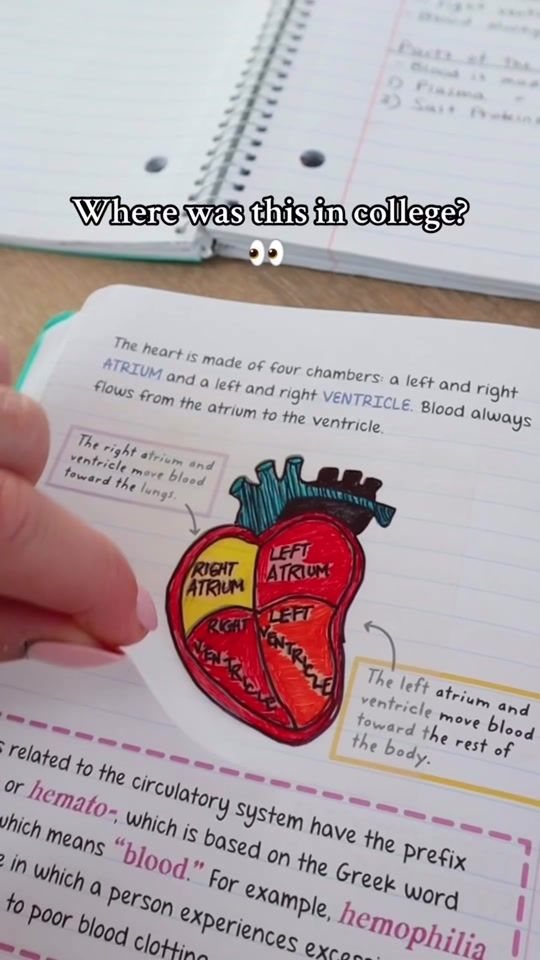 Parts of The
- Blood is mad
1) Plasma
2) Salt Proteins
Where was this in college?
👀
The heart is made of four chambers: a left and right
ATRIUM and a left and right VENTRICLE. Blood always
flows from the atrium to the ventricle.
The right atrium and
ventricle move blood
toward the lungs.
RIGHT
ATRIUM
LEFT
ATRIUM
RIGHT
VENTRICLE
LEFT
VENTRICLE
The left atrium and
ventricle move blood
toward the rest of
the body.
related to the circulatory system have the prefix
or hemato-, which is based on the Greek word
which means “blood.” For example, hemophilia
in which a person experiences
to poor blood clotting